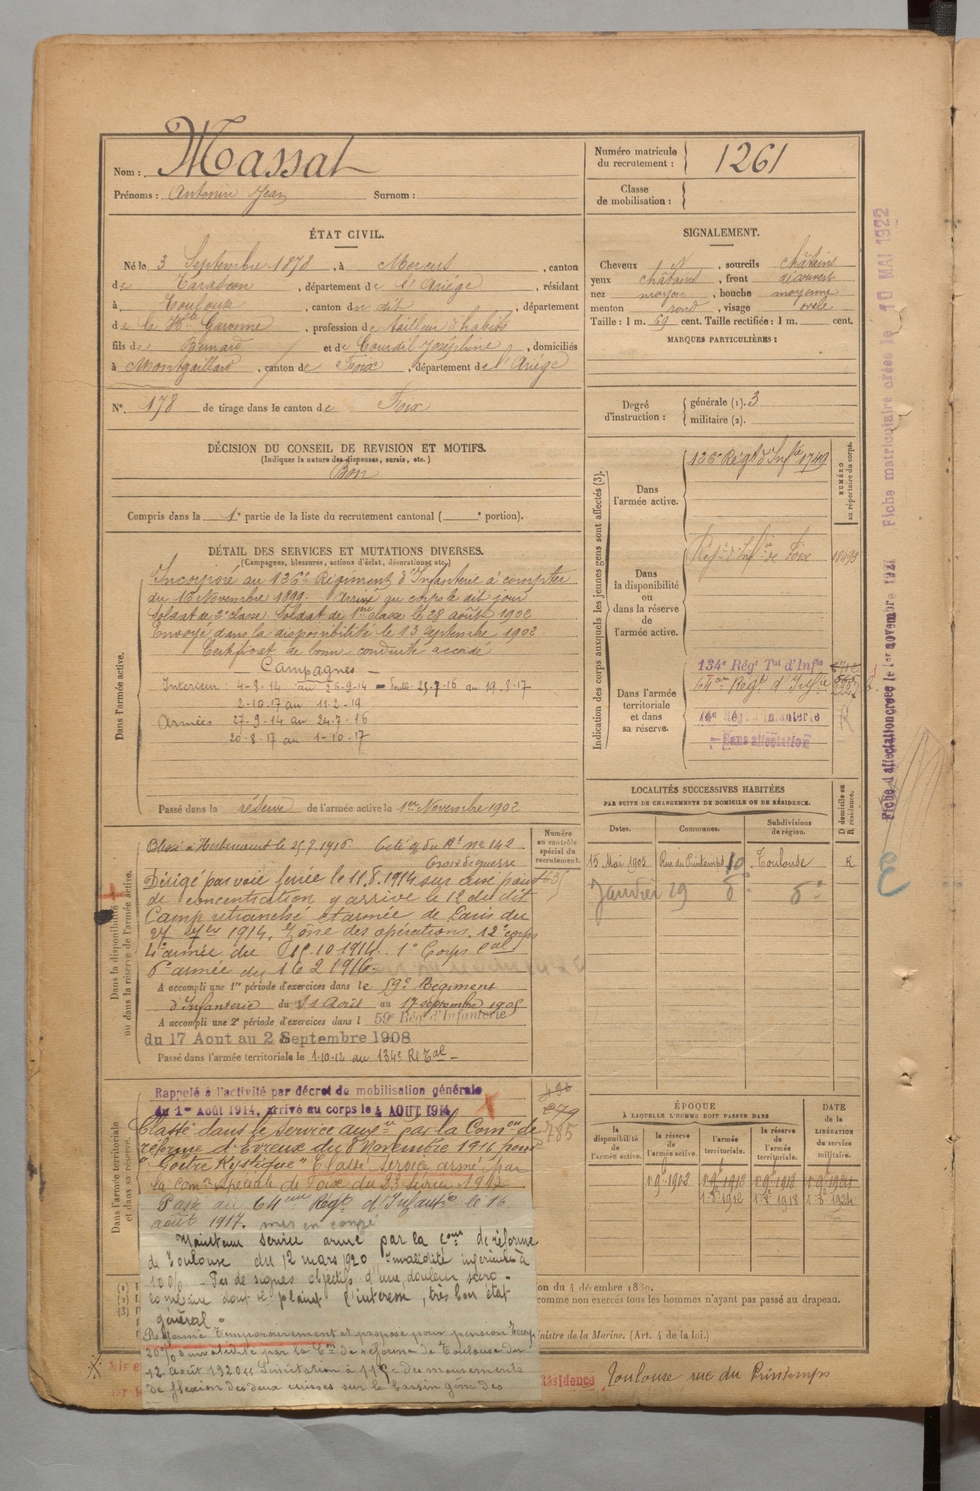 Nom : Massat
Prénoms : Antonin Jean Surnom :
Numéro matricule du recrutement : 1261
Classe de mobilisation :
ÉTAT CIVIL.
Né le 3 Septembre 1878, à Mercus, canton
de Tarascon, département de l'Ariège, résidant
à Toulouse, canton du dit, département
de la Hte Garonne, profession de tailleur d'habits
fils de Bernard et de Gourdil Joséphine, domiciliés
à Montgaillard, canton de Foix, département de l'Ariège
N° 178 de tirage dans le canton de Foix
SIGNALEMENT.
Cheveux N, sourcils châtains
yeux châtains, front découvert
nez moyen, bouche moyenne
menton rond, visage ovale
Taille : 1 m. 69 cent. Taille rectifiée : 1 m. cent.
MARQUES PARTICULIÈRES :
Degré d'instruction : générale (1). 3
militaire (2).
DÉCISION DU CONSEIL DE REVISION ET MOTIFS.
(Indiquer la nature des dispenses, sursis, etc.)
Bon
Compris dans la 1e partie de la liste du recrutement cantonal ( e portion).
DÉTAIL DES SERVICES ET MUTATIONS DIVERSES.
(Campagnes, blessures, actions d'éclat, décorations, etc.)
Dans l'armée active.
Incorporé au 136e Régiment d'Infanterie à compter
du 16 Novembre 1899. Arrivé au corps le dit jour
Soldat de 2e classe. Soldat de 1ère classe le 28 août 1902
Envoyé dans la disponibilité le 13 Septembre 1902
Certificat de bonne conduite accordé
Campagnes
Intérieur 4-8-14 au 26-9-14 25-7-16 au 19-8-17
2-10-17 au 11-2-19
Armées 27-9-14 au 24-7-16
20-8-17 au 1-10-17
Passé dans la réserve de l'armée active le 1er Novembre 1902
Indication des corps auxquels les jeunes gens sont affectés (3).
NUMÉRO au répertoire du corps.
Dans l'armée active.
136e Régt d'Infie 1749
Dans la disponibilité ou dans la réserve de l'armée active.
Régt d'Infie de Foix
Dans l'armée territoriale et dans sa réserve.
134e Régt Tal d'Infie
64ème Régt d'Infie
Régt Infanterie
Sans affectation
R
LOCALITÉS SUCCESSIVES HABITÉES
PAR SUITE DE CHANGEMENTS DE DOMICILE OU DE RÉSIDENCE.
D domicile ou R résidence.
Dates. Communes. Subdivisions de région.
15 Mai 1902 Rue du Printemps 10 Toulouse R
Janvier 19 do do
Dans la disponibilité ou dans la réserve de l'armée active.
Numéro au contrôle spécial du recrutement.
Blessé à Herbécourt le 25.7.1916
Croix de guerre
Dirigé par voie ferrée le 11.8.1914 sur un point
de concentration y arrive le 12 du dit
Camp retranché et armée de Paris du
27 7bre 1914. Zône des opérations. 12e corps
4e armée du 15.10.1914. 1er Corps
6e armée du 16 2 1916
A accompli une 1re période d'exercices dans le 59e Régiment
d'Infanterie du 21 Août au 17 septembre 1905
A accompli une 2e période d'exercices dans l 59e Rég. d'Infanterie
du 17 Aout au 2 Septembre 1908
Passé dans l'armée territoriale le 1.10.12 au 134e Rt Tal
Dans l'armée territoriale et dans sa réserve.
Rappelé à l'activité par décret de mobilisation générale
du 1er Août 1914, arrivé au corps le 4 AOUT 1914
Classé dans le service auxre par la Comon de
réforme d'Evreux du 8 Novembre 1916 pour
"Goitre Kystique" Classé service armé par
la comon Spéciale de Foix du 23
Passé au 64ème Régt d'Infantie le 16
août 1917. mis en congé
Maintenu service armé par la Comon de réforme
de Toulouse du 12 mars 1920 Invalidité inférieure à
10 0/0 – Pas de signes objectifs d'une douleur sacro-
lombaire dont se plaint l'intéressé, très bon état
général.
Réformé temporairement et proposé pour pension temp
20% d'invalidité par la Con de réforme de Toulouse du
12 Août 1920 Limitation à 110° des mouvements
de flexion des deux cuisses sur le bassin gêne des
785
ÉPOQUE
À LAQUELLE L'HOMME DOIT PASSER DANS
DATE de la LIBÉRATION du service militaire.
la disponibilité de l'armée active. la réserve de l'armée active. l'armée territoriale. la réserve de l'armée territoriale.
1 9bre 1902 1 9bre 1912 1 9bre 1918 1 9bre 1924
1 8bre 1912 1 8bre 1918 1 8bre 1924
on du 4 décembre 1889.
comme non exercés tous les hommes n'ayant pas passé au drapeau.
inistre de la Marine. (Art. 4 de la loi.)
Résidence Toulouse rue du Printemps
Fiche d'affectation créée le 1er novembre 1921 Fiche matriculaire créée le 10 MAI 1922